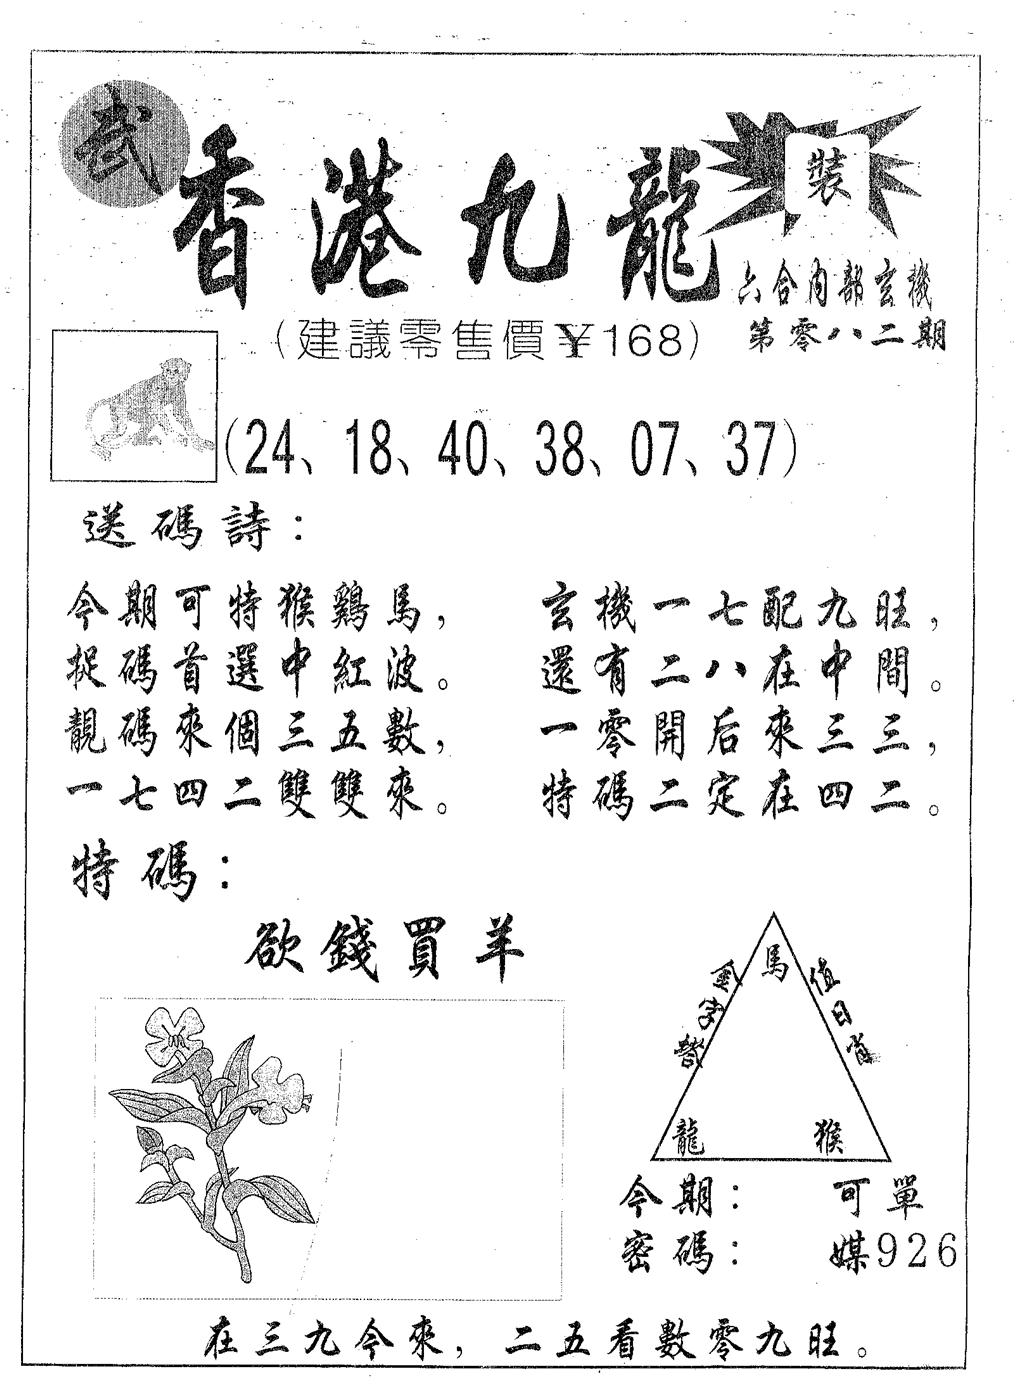 武
香港九龍
裝
六合內部玄機
第零八二期
(建議零售價¥168)
(24、18、40、38、07、37)
送碼詩：
今期可特猴鷄馬，
捉碼首選中紅波。
靚碼來個三五數，
一七四二雙雙來。
玄機一七配九旺，
還有二八在中間。
一零開后來三三，
特碼二定在四二。
特碼：
欲錢買羊
馬
金字塔
值日肖
龍
猴
今期： 可單
密碼： 媒926
在三九今來，二五看數零九旺。